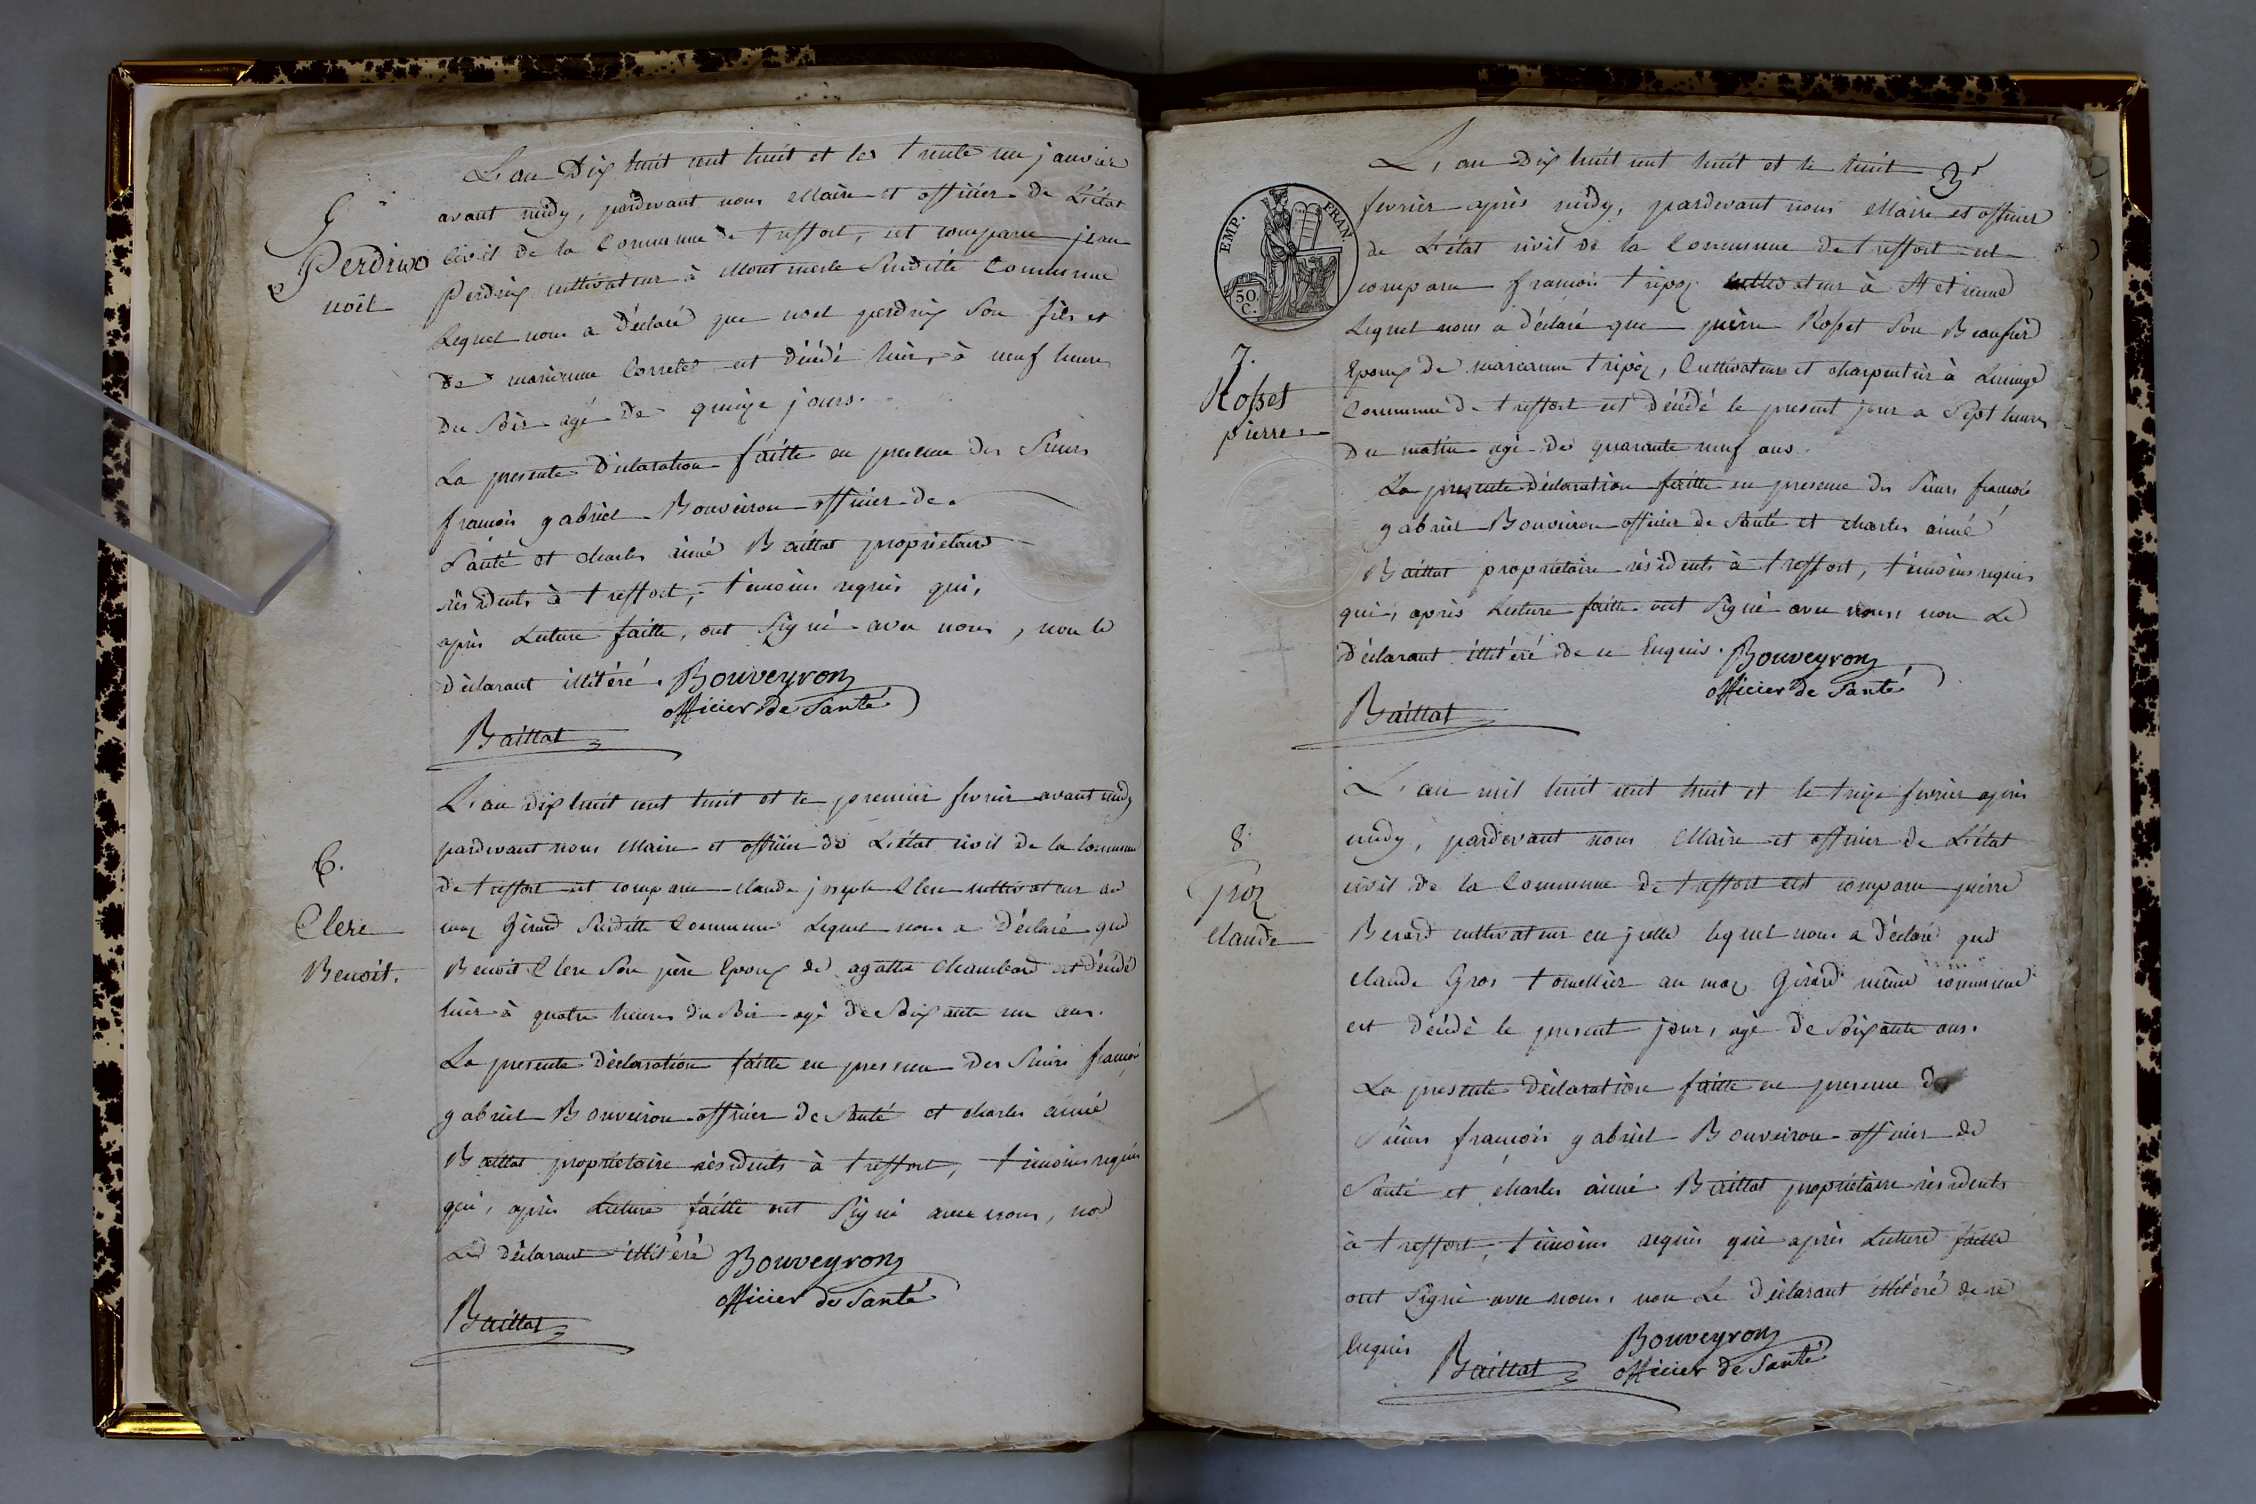 5
Perdrix
noël
L'an Dix huit cent huit et les trente un janvier
avant midy, pardevant nous Maire et officier de L'état
Civil de la Commune de treffort, est comparu jean
Perdrix cultivateur à Montmerle Susditte Commune
Lequel nous a déclaré que noel perdrix Son fils et
de marianne est décédé hièr, à neuf heures
Du Soir agé de quinze jours.
La presente déclaration faitte en presence des Sieurs
françois gabriel Bouveiron officier de
Santé et charles aimé Baillat propriétaire
résidents à treffort, témoins requis qui,
après Lecture faitte, ont Signé avec nous, non le
déclarant illitéré. Bouveyron
officier de Santé
Baillat
6.
Clerc
Benoit.
L'an dix huit cent huit et le premier fevrier avant midy
pardevant nous Maire et officier de L'état civil de la Commune
de treffort est comparu claude joseph Clerc cultivateur au
maz Girard Susditte Commune Lequel nous a déclaré que
Benoit Clerc Son père Epoux de agatte Chambard est décédé
hièr à quatre heures du Soir agé de Soixante un ans.
La presente déclaration faitte en presence des Sieurs françois
gabriel Bouveiron officier de Santé et charles aimé
Baillat propriétaire résidents à treffort, témoins requis
qui, après Lecture faitte ont Signé avec nous, non
Le déclarant illitéré Bouveyron
officier de Santé
Baillat
3
EMP. FRAN.
50.
C.
7.
Rosset
pierre
L'an Dix huit cent huit et le huit
fevrier après midy, pardevant nous Maire et officier
de L'état civil de la Commune de treffort est
comparu françois tripoz cultivateur à St etienne
Lequel nous a déclaré que pièrre Rosset Son Beaufrère
Epoux de marianne tripoz, Cultivateur et charpentier à
Commune de treffort est décédé le présent jour a Sept heures
du matin agé de quarante neuf ans.
La presente déclaration faitte en presence des Sieurs françois
gabriel Bouveiron officier de Santé et charles aimé
Baillat propriétaire résidents à treffort, témoins requis
qui, après Lecture faitte ont Signé avec nous non Le
déclarant illitéré de ce Enquis. Bouveyron
officier de Santé
Baillat
8
claude
L'an mil huit cent huit et le treize fevrier après
midy, pardevant nous Maire et officier de L'état
civil de la Commune de treffort est comparu pièrre
Berard cultivateur en lequel nous a déclaré que
claude Gros tonellier au maz Girard même commune
est décédé le présent jour, agé de Soixante ans.
La presente déclaration faitte en presence des
Sieurs françois gabriel Bouveiron officier de
Santé et charles aimé Baillat propriétaire résidents
à treffort, témoins requis qui après Lecture faitte
ont Signé avec nous, non Le déclarant illitéré de ce
Enquis Bouveyron
Baillat officier de Santé